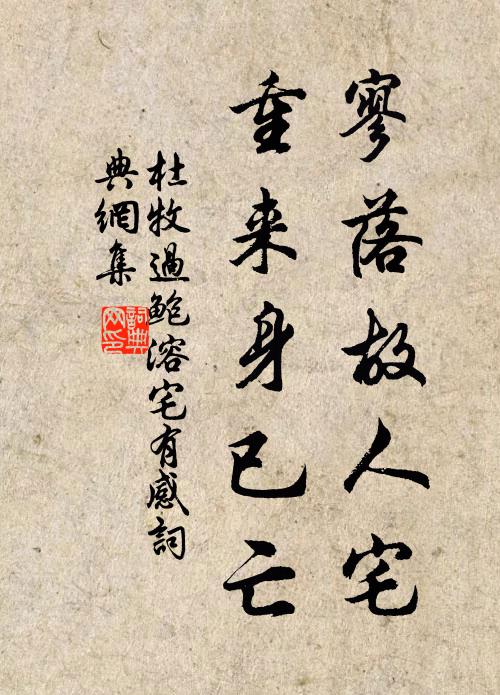 寥落故人宅
重来身已亡
杜牧過鮑溶宅有感詞
典網集
詞典
网印